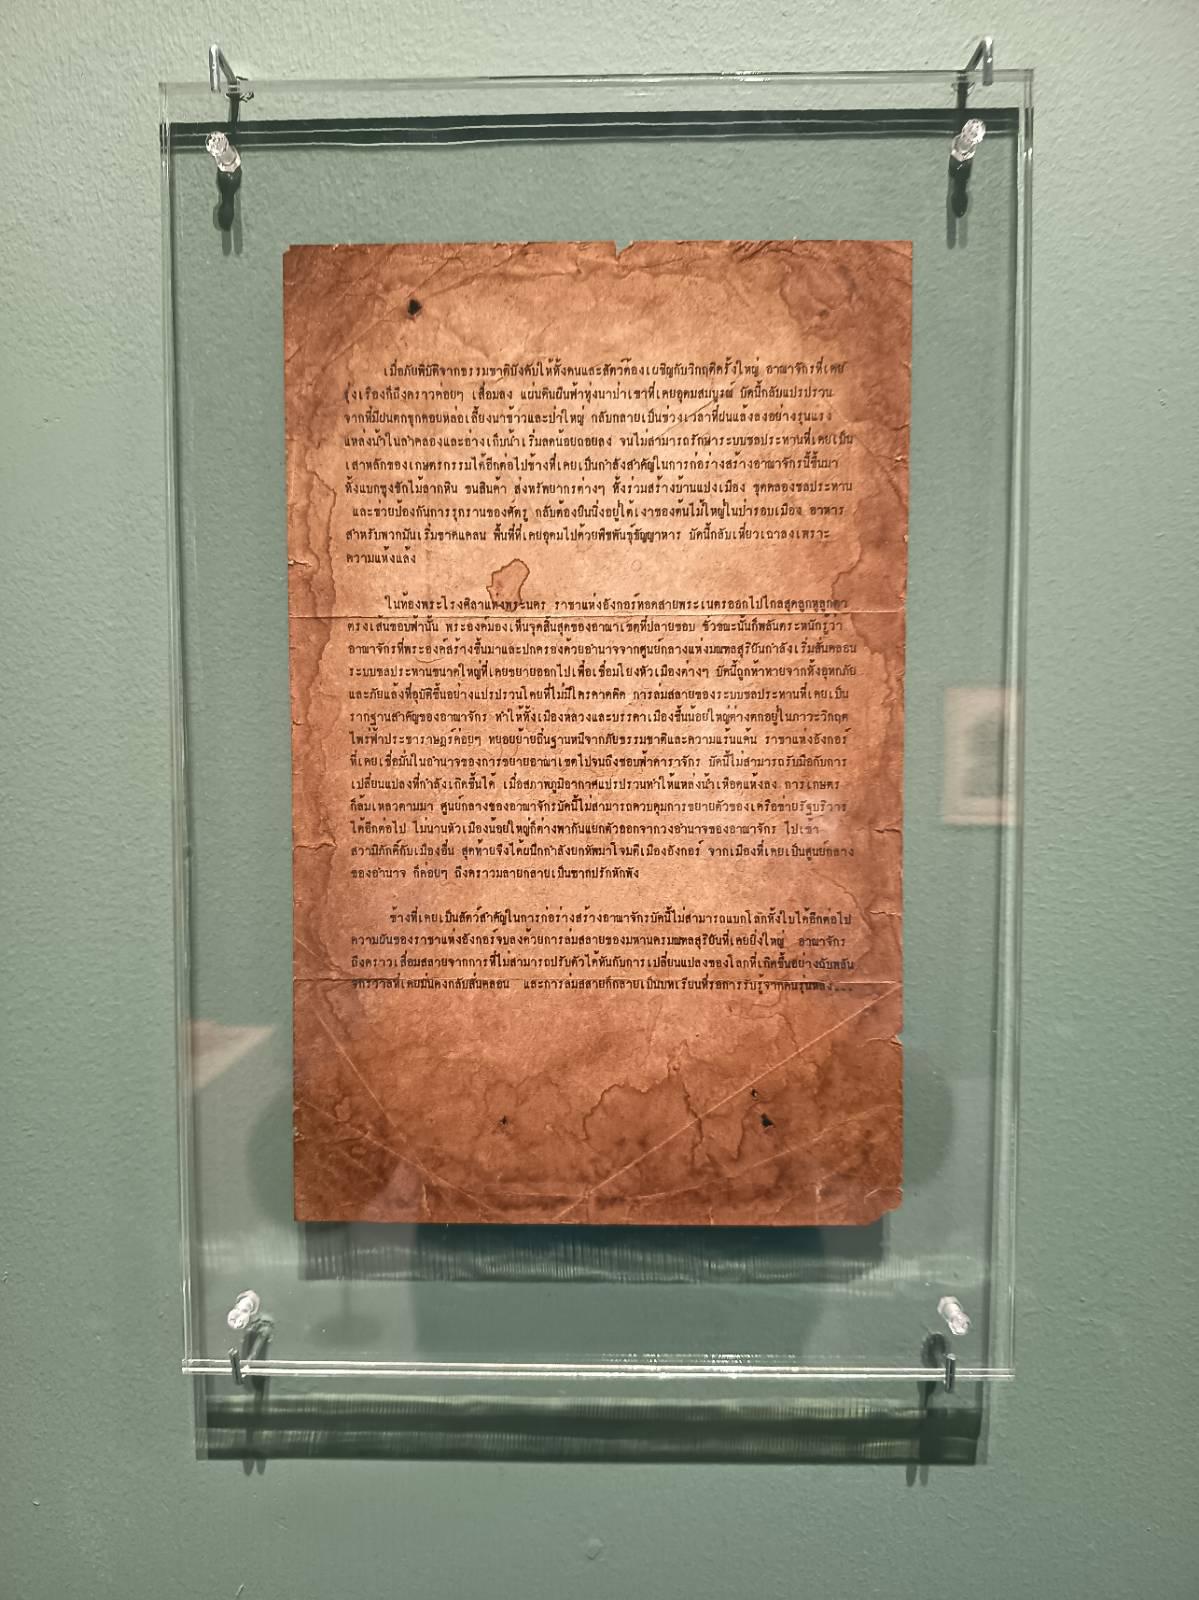 เมื่อภัยพิบัติจากธรรมชาติบังคับให้ทั้งคนและสัตว์ต้องเผชิญกับวิกฤติครั้งใหญ่ อาณาจักรที่เคย
รุ่งเรืองก็ถึงคราวค่อยๆ เสื่อมลง แผ่นดินผืนฟ้าทุ่งนาป่าเขาที่เคยอุดมสมบูรณ์ บัดนี้กลับแปรปรวน
จากที่มีฝนตกชุกคอยหล่อเลี้ยงนาข้าวและป่าใหญ่ กลับกลายเป็นช่วงเวลาที่ฝนแล้งลงอย่างรุนแรง
แหล่งน้ำในลำคลองและอ่างเก็บน้ำเริ่มลดน้อยถอยลง จนไม่สามารถรักษาระบบชลประทานที่เคยเป็น
เสาหลักของเกษตรกรรมได้อีกต่อไปช้างที่เคยเป็นกำลังสำคัญในการก่อร่างสร้างอาณาจักรนี้ขึ้นมา
ทั้งแบกซุงชักไม้ลากหิน ขนสินค้า ส่งทรัพยากรต่างๆ ทั้งร่วมสร้างบ้านแปงเมือง ขุดคลองชลประทาน
และช่วยป้องกันการรุกรานของศัตรู กลับต้องยืนนิ่งอยู่ใต้เงาของต้นไม้ใหญ่ในป่ารอบเมือง อาหาร
สำหรับพวกมันเริ่มขาดแคลน พื้นที่ที่เคยอุดมไปด้วยพืชพันธุ์ธัญญาหาร บัดนี้กลับเหี่ยวเฉาลงเพราะ
ความแห้งแล้ง
ในท้องพระโรงศิลาแห่งพระนคร ราชาแห่งอังกอร์ทอดสายพระเนตรออกไปไกลสุดลูกหูลูกตา
ตรงเส้นขอบฟ้านั้น พระองค์มองเห็นจุดสิ้นสุดของอาณาเขตที่ปลายขอบ ชั่วขณะนั้นก็พลันตระหนักรู้ว่า
อาณาจักรที่พระองค์สร้างขึ้นมาและปกครองด้วยอำนาจจากศูนย์กลางแห่งมณฑลสุริยันกำลังเริ่มสั่นคลอน
ระบบชลประทานขนาดใหญ่ที่เคยขยายออกไปเพื่อเชื่อมโยงหัวเมืองต่างๆ บัดนี้ถูกท้าทายจากทั้งอุทกภัย
และภัยแล้งที่อุบัติขึ้นอย่างแปรปรวนโดยที่ไม่มีใครคาดคิด การล่มสลายของระบบชลประทานที่เคยเป็น
รากฐานสำคัญของอาณาจักร ทำให้ทั้งเมืองหลวงและบรรดาเมืองขึ้นน้อยใหญ่ต่างตกอยู่ในภาวะวิกฤต
ไพร่ฟ้าประชาราษฎร์ค่อยๆ ทยอยย้ายถิ่นฐานหนีจากภัยธรรมชาติและความแร้นแค้น ราชาแห่งอังกอร์
ที่เคยเชื่อมั่นในอำนาจของการขยายอาณาเขตไปจนถึงขอบฟ้าดาราจักร บัดนี้ไม่สามารถรับมือกับการ
เปลี่ยนแปลงที่กำลังเกิดขึ้นได้ เมื่อสภาพภูมิอากาศแปรปรวนทำให้แหล่งน้ำเหือดแห้งลง การเกษตร
ก็ล้มเหลวตามมา ศูนย์กลางของอาณาจักรบัดนี้ไม่สามารถควบคุมการขยายตัวของเครือข่ายรัฐบริวาร
ได้อีกต่อไป ไม่นานหัวเมืองน้อยใหญ่ก็ต่างพากันแยกตัวออกจากวงอำนาจของอาณาจักร ไปเข้า
สวามิภักดิ์กับเมืองอื่น สุดท้ายจึงได้ผนึกกำลังยกทัพมาโจมตีเมืองอังกอร์ จากเมืองที่เคยเป็นศูนย์กลาง
ของอำนาจ ก็ค่อยๆ ถึงคราวมลายกลายเป็นซากปรักหักพัง
ช้างที่เคยเป็นสัตว์สำคัญในการก่อร่างสร้างอาณาจักรบัดนี้ไม่สามารถแบกโลกทั้งใบได้อีกต่อไป
ความฝันของราชาแห่งอังกอร์จบลงด้วยการล่มสลายของมหานครมณฑลสุริยันที่เคยยิ่งใหญ่ อาณาจักร
ถึงคราวเสื่อมสลายจากการที่ไม่สามารถปรับตัวได้ทันกับการเปลี่ยนแปลงของโลกที่เกิดขึ้นอย่างฉับพลัน
จักรวาลที่เคยมั่นคงกลับสั่นคลอน และการล่มสลายก็กลายเป็นบทเรียนที่รอการรับรู้จากคนรุ่นหลัง...